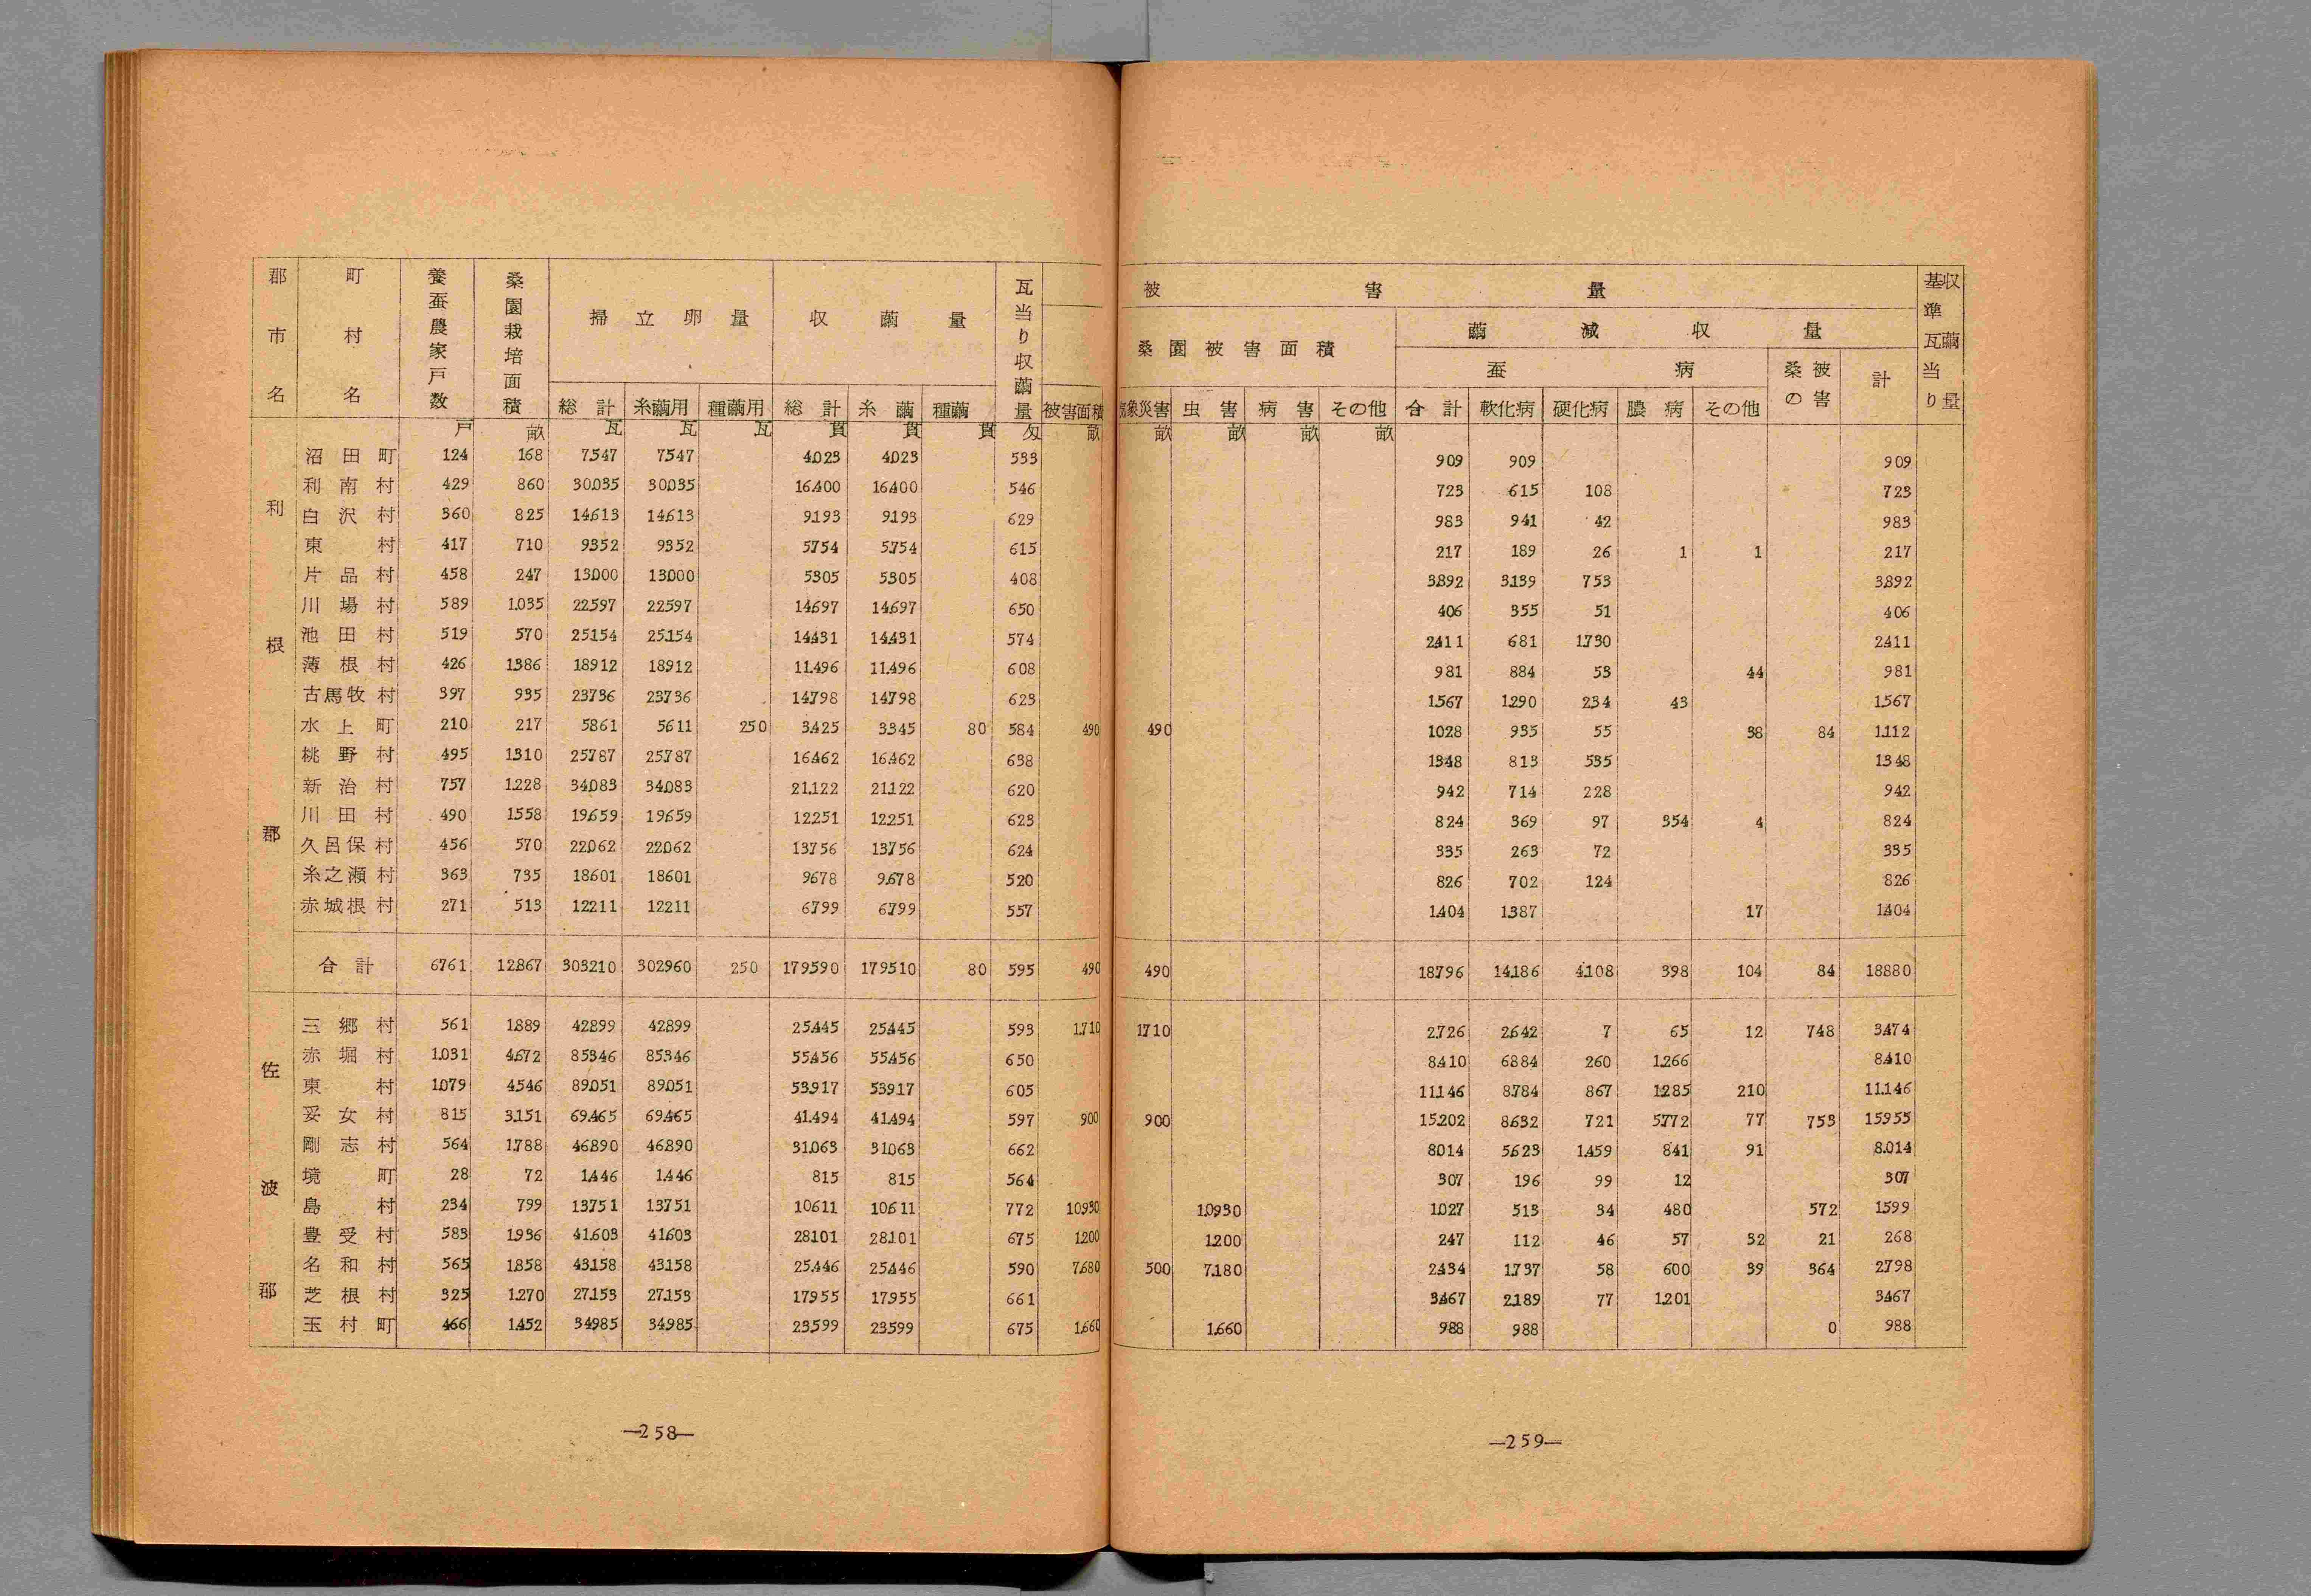 郡市名 町村名 養蚕農家戸数 桑園栽培面積 掃立卵量 収繭量 瓦当り収繭量
総計 糸繭用 種繭用 総計 糸繭 種繭 被害面積
戸 畝 瓦 瓦 瓦 貫 貫 貫 匁 畝
利根郡
沼田町 124 168 7547 7547 4023 4023 533
利南村 429 860 30035 30035 16400 16400 546
白沢村 360 825 14613 14613 9193 9193 629
東村 417 710 9352 9352 5754 5754 615
片品村 458 247 13000 13000 5305 5305 408
川場村 589 1035 22597 22597 14697 14697 650
池田村 519 570 25154 25154 14431 14431 574
薄根村 426 1386 18912 18912 11496 11496 608
古馬牧村 397 935 23736 23736 14798 14798 623
水上町 210 217 5861 5611 250 3425 3345 80 584 490
桃野村 495 1310 25787 25787 16462 16462 638
新治村 757 1228 34083 34083 21122 21122 620
川田村 490 1558 19659 19659 12251 12251 623
久呂保村 456 570 22062 22062 13756 13756 624
糸之瀬村 363 735 18601 18601 9678 9678 520
赤城根村 271 513 12211 12211 6799 6799 557
合計 6761 12867 303210 302960 250 179590 179510 80 595 490
佐波郡
三郷村 561 1889 42899 42899 25445 25445 593 1710
赤堀村 1031 4672 85346 85346 55456 55456 650
東村 1079 4546 89051 89051 53917 53917 605
妥女村 815 3151 69465 69465 41494 41494 597 900
剛志村 564 1788 46890 46890 31063 31063 662
境町 28 72 1446 1446 815 815 564
島村 234 799 13751 13751 10611 10611 772 10930
豊受村 583 1936 41603 41603 28101 28101 675 1200
名和村 565 1858 43158 43158 25446 25446 590 7680
芝根村 325 1270 27153 27153 17955 17955 661
玉村町 466 1452 34985 34985 23599 23599 675 1660
—258—
被害量 基準瓦当り収繭量
桑園被害面積 繭減収量
蚕病 桑の被害 計
気象災害 虫害 病害 その他 合計 軟化病 硬化病 膿病 その他
畝 畝 畝 畝
909 909 909
723 615 108 723
983 941 42 983
217 189 26 1 1 217
3892 3139 753 3892
406 355 51 406
2411 681 1730 2411
981 884 53 44 981
1567 1290 234 43 1567
490 1028 935 55 38 84 1112
1348 813 535 1348
942 714 228 942
824 369 97 354 4 824
335 263 72 335
826 702 124 826
1404 1387 17 1404
490 18796 14186 4108 398 104 84 18880
1710 2726 2642 7 65 12 748 3474
8410 6884 260 1266 8410
11146 8784 867 1285 210 11146
900 15202 8632 721 5772 77 753 15955
8014 5623 1459 841 91 8014
307 196 99 12 307
10930 1027 513 34 480 572 1599
1200 247 112 46 57 32 21 268
500 7180 2434 1737 58 600 39 364 2798
3467 2189 77 1201 3467
1660 988 988 0 988
—259—